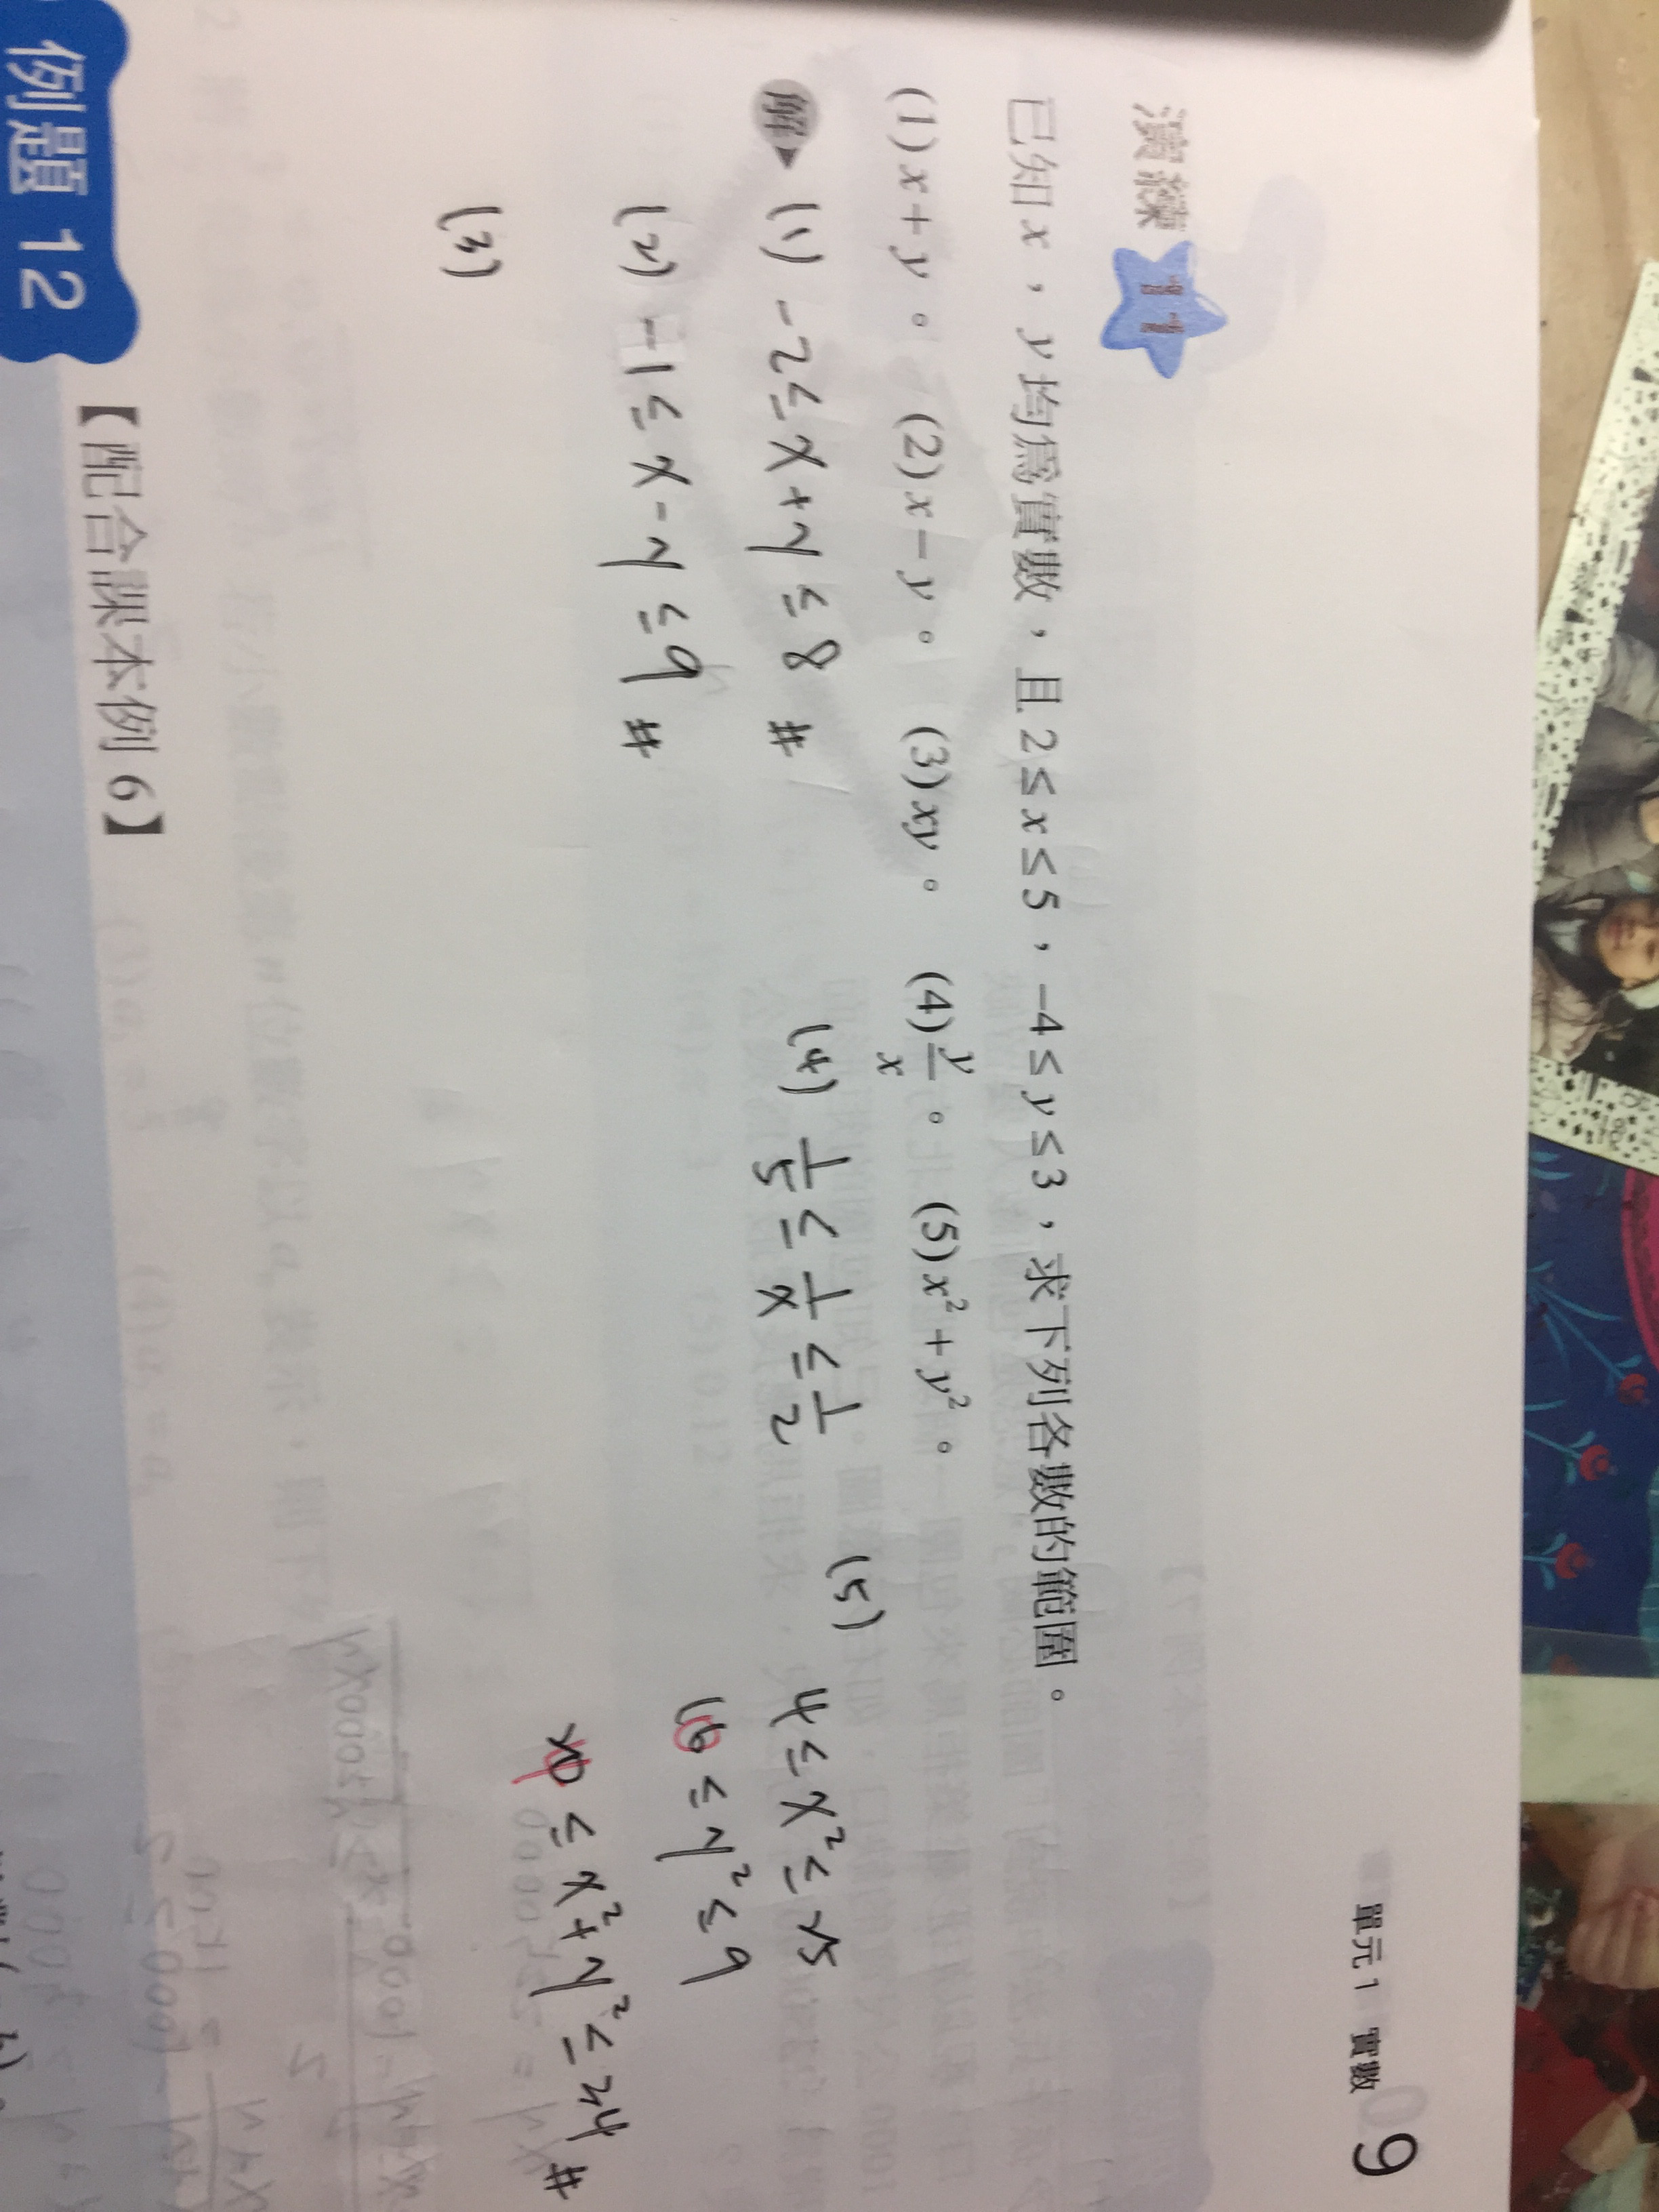 單元1 實數 9
演練 11
已知 x，y 均為實數，且 2≤x≤5，-4≤y≤3，求下列各數的範圍。
(1) x+y。 (2) x-y。 (3) xy。 (4) y/x。 (5) x²+y²。
解 (1) -2≤x+y≤8 #
(2) -1≤x-y≤9 #
(3)
(4) 1/5≤1/x≤1/2
(5) 4≤x²≤25
16≤y²≤9
20≤x²+y²≤34 #
例題 12
【配合課本例 6】